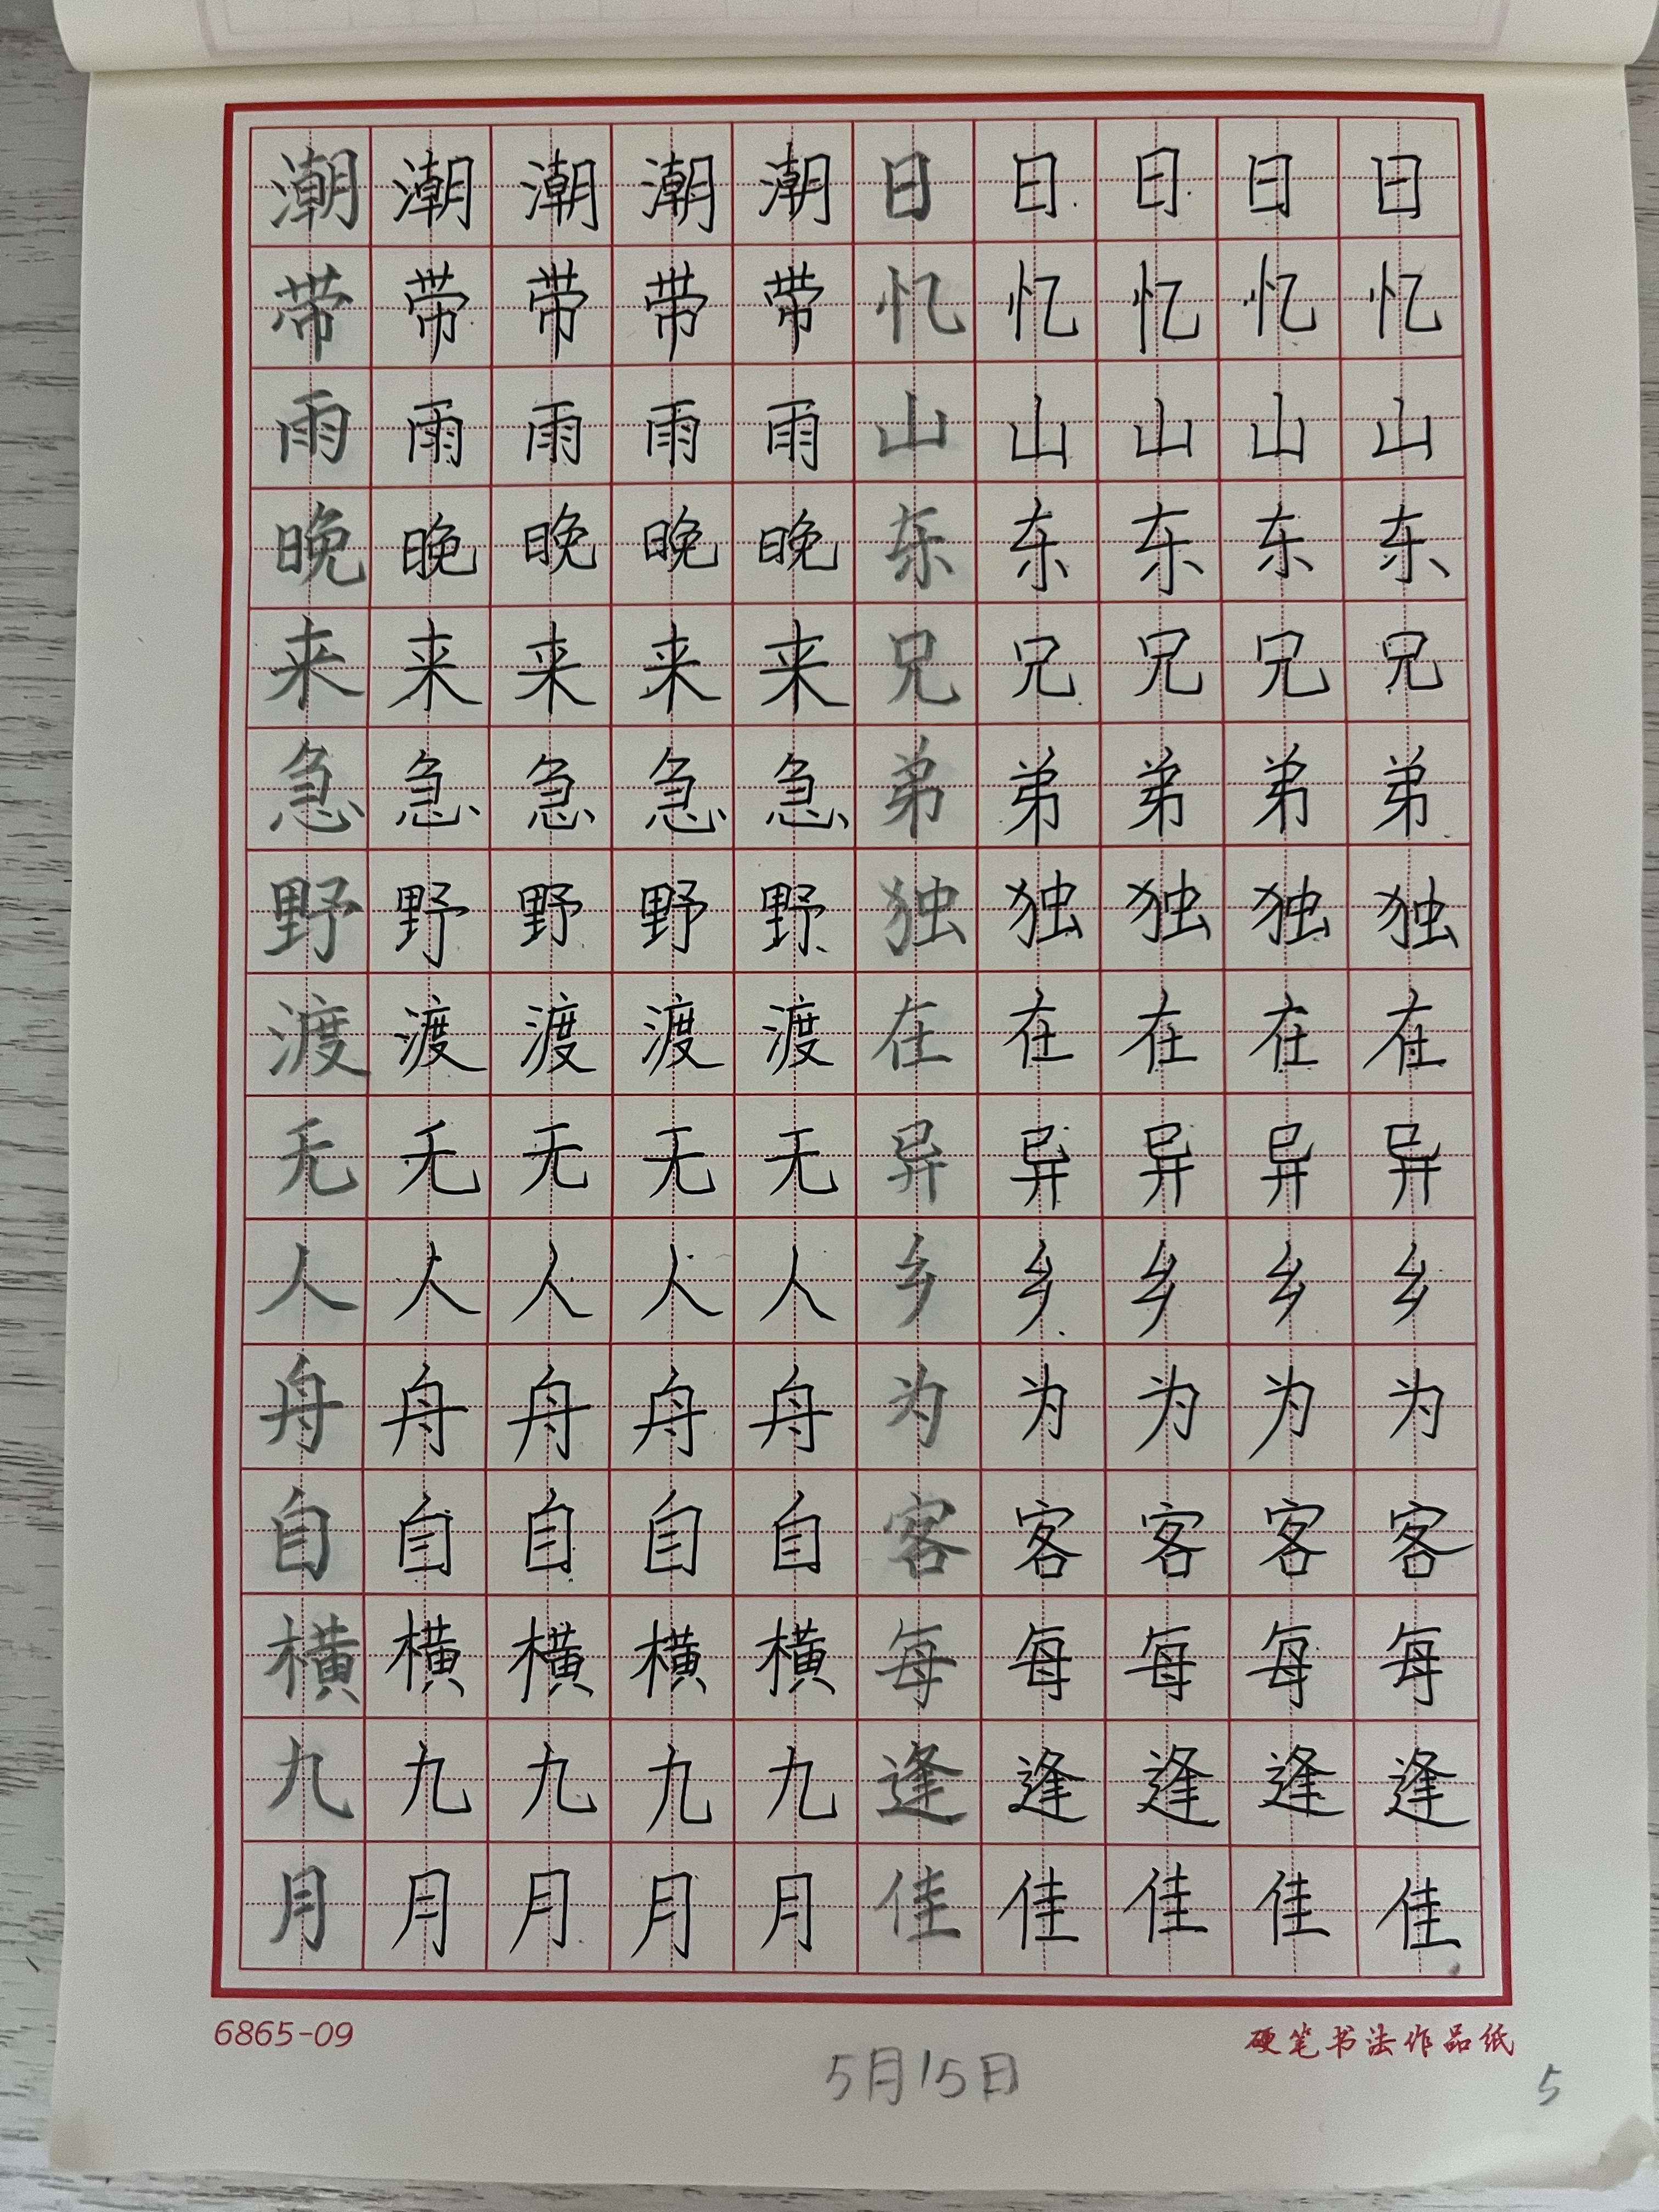 潮潮潮潮潮日日日日日
带带带带带忆忆忆忆忆
雨雨雨雨雨山山山山山
晚晚晚晚晚东东东东东
来来来来来兄兄兄兄兄
急急急急急弟弟弟弟弟
野野野野野独独独独独
渡渡渡渡渡在在在在在
无无无无无异异异异异
人人人人人乡乡乡乡乡
舟舟舟舟舟为为为为为
自自自自自客客客客客
横横横横横每每每每每
九九九九九逢逢逢逢逢
月月月月月佳佳佳佳佳
6865-09 硬笔书法作品纸
5月15日
5